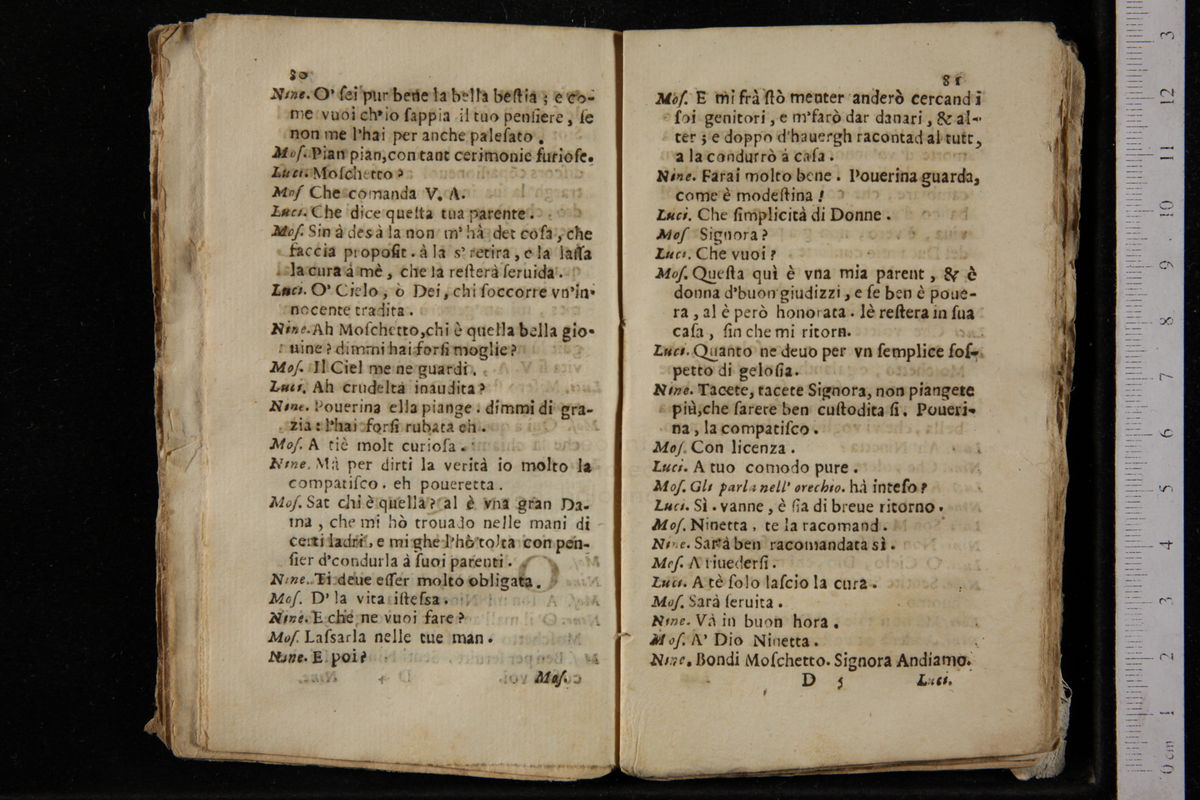 80
Nine. O' ſei pur bene la bella beſtia ; e co-
me vuoi ch'io ſappia il tuo penſiere, ſe
non me l'hai per anche paleſato .
Moſ. Pian pian, con tant cerimonie furioſe.
Luci. Moſchetto ?
Moſ Che comanda V. A.
Luci. Che dice queſta tua parente .
Moſ. Sin à desà la non m' hà det coſa, che
faccia propoſit . à la s' retira, e la laſſa
la cura à mè, che la reſterà ſeruida .
Luci. O' Cielo, ò Dei, chi ſoccorre vn'in-
nocente tradita .
Nine. Ah Moſchetto, chi è quella bella gio-
uine ? dimmi hai forſi moglie ?
Moſ. Il Ciel me ne guardi .
Luci. Ah crudeltà inaudita ?
Nine. Pouerina ella piange . dimmi di gra-
zia : l'hai forſi rubata eh .
Moſ. A tiè molt curioſa .
Nine. Mà per dirti la verità io molto la
compatiſco . eh poueretta .
Moſ. Sat chi è quella ? al è vna gran Da-
ma , che mi hò trouado nelle mani di
certi ladri , e mi ghe l'hò tolta con pen-
ſier d'condurla à ſuoi parenti .
Nine. Ti deue eſſer molto obligata .
Moſ. D' la vita iſteſsa .
Nine. E che ne vuoi fare ?
Moſ. Laſsarla nelle tue man .
Nine. E poi ?
Moſ.
81
Moſ. E mi frà ſtò menter anderò cercand i
ſoi genitori , e m'farò dar danari , & al-
ter ; e doppo d'hauergh racontad al tutt ,
a la condurrò à caſa .
Nine. Farai molto bene . Pouerina guarda,
come è modeſtina !
Luci. Che ſimplicità di Donne .
Moſ Signora ?
Luci. Che vuoi ?
Moſ. Queſta quì è vna mia parent , & è
donna d'buon giudizzi , e ſe ben è poue-
ra , al è però honorata . lè reſtera in ſua
caſa , ſin che mi ritorn.
Luci. Quanto ne deuo per vn ſemplice ſoſ-
petto di geloſia.
Nine. Tacete, tacete Signora, non piangete
più, che ſarete ben cuſtodita ſi. Poueri-
na , la compatiſco .
Moſ. Con licenza .
Luci. A tuo comodo pure .
Moſ. Gli parla nell' orechio. hà inteſo ?
Luci. Sì . vanne , è ſia di breue ritorno .
Moſ. Ninetta , te la racomand .
Nine. Sarà ben racomandata sì .
Moſ. A riuederſi .
Luci. A tè ſolo laſcio la cura .
Moſ. Sarà ſeruita .
Nine. Và in buon hora .
Moſ. A' Dio Ninetta .
Nine. Bondi Moſchetto. Signora Andiamo.
D 5 Luci.
0 cm 1 2 3 4 5 6 7 8 9 10 11 12 13